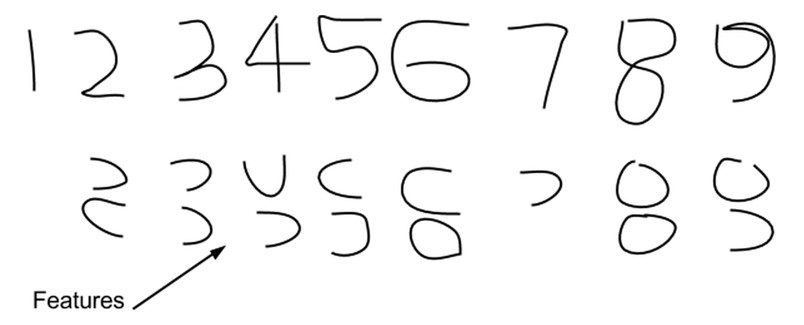 1 2 3 4 5 6 7 8 9
Features